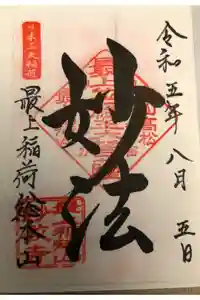 令和五年八月五日
日本三大稲荷
妙法
最上稲荷総本山